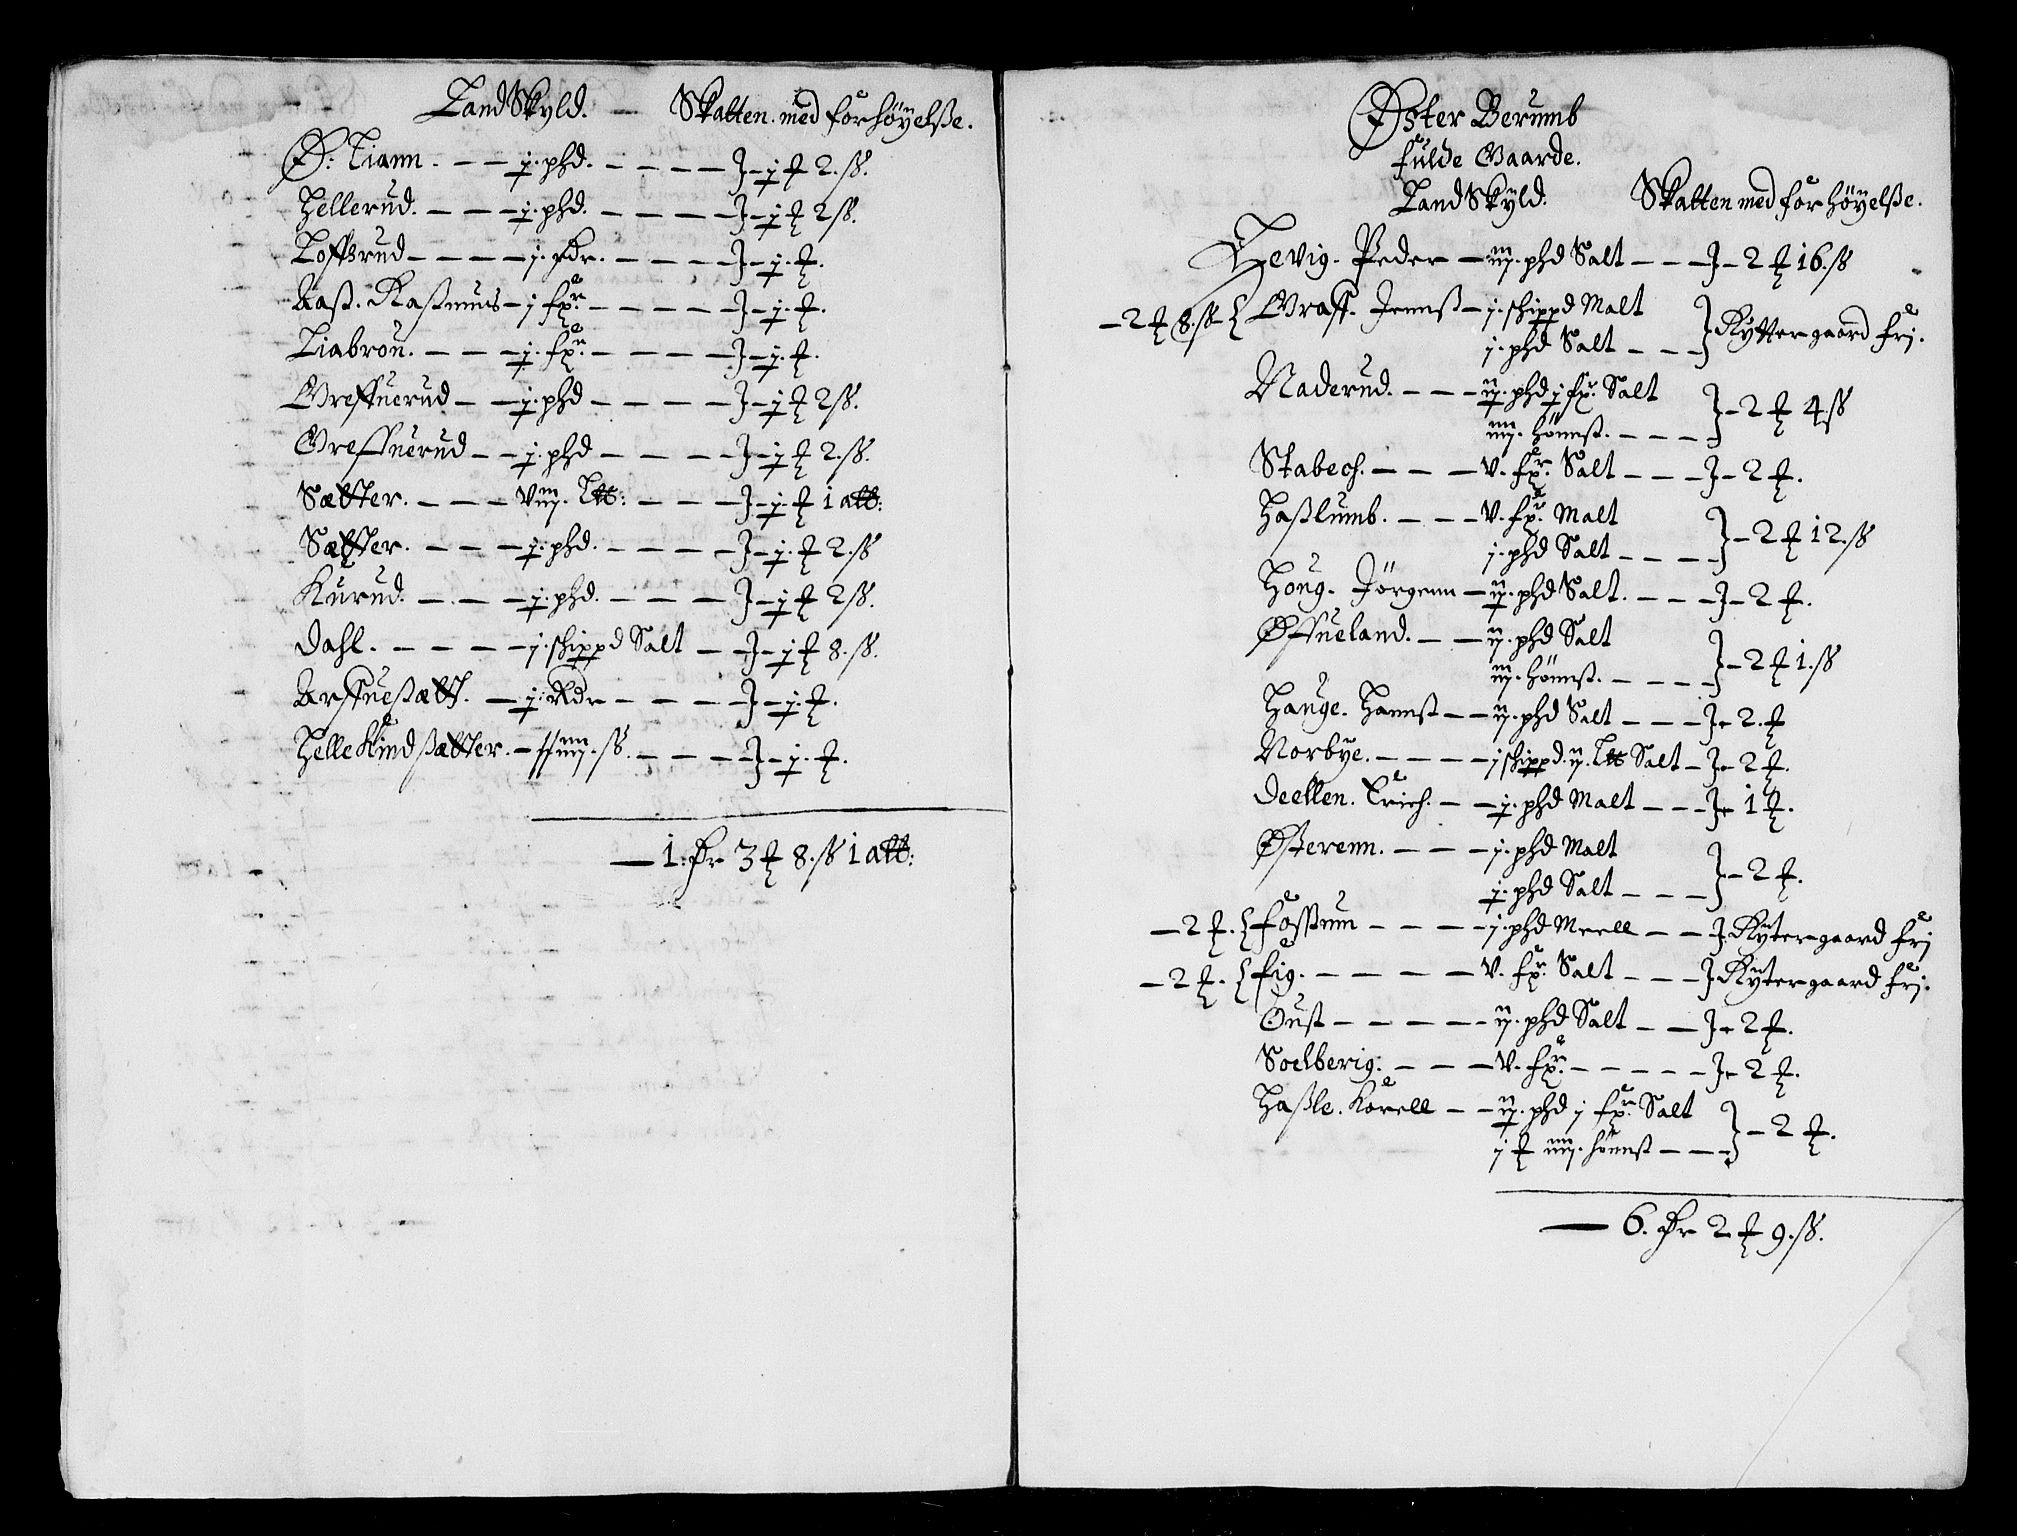 Land Skyld. — Skatten. med forhöyelße.
Ø: Tiann. — — j. phd. — — — — } — j ƒ 2. ß.
Hellerud. — — — j. phd. — — — — } — j ƒ 2 ß.
Loffsrud — — — — j. rdr. — — — — } — j. ƒ.
Aaß. Raßmus — j fχr. — — — — } — j. ƒ.
Liabrou. — — — j. fχr. — — — — } — j. ƒ.
Greffuerud — — j. phd — — — — } — j ƒ 2 ß.
Greffuerud — — j. phd — — — — } — j ƒ 2. ß.
Sætter. — — — Viij. Ltt: — — — } — j. ƒ 1 alb:
Sætter. — — — j. phd. — — — — } — j. ƒ 2. ß
Kurud. — — — j. phd. — — — } — j ƒ 2 ß.
Dahl. — — — — j. schippd Salt — } — j ƒ 8. ß.
Arffueßætt. — j. Rdr — — — — } — j. ƒ.
Helle Kindßætter. — ß. — — — } — j. ƒ.
— 1. Ør 3 ƒ 8. ß 1 alb:
Øster Berumb
fulde Gaarde.
Land Skÿld. Skatten med forhöÿelße.
Hevig. Peder — iij. phd Salt — — — } — 2 ƒ 16. ß
— 2 ƒ 8. ß — { Graff. Jennß — j. schippd Malt
j. phd Salt — — — } Rytter gaard frj.
Naderud. — — — ij. phd j fχr. Salt
iiij. hönnß. — — — } — 2 ƒ 4. ß
Stabech. — — — V. fχr. Salt — — } — 2 ƒ.
Haßlumb. — — — V. fχr. Malt
j. phd Salt — — — } — 2 ƒ 12. ß
Houg. Jörgenn — ij. phd Salt. — — — } — 2 ƒ.
Øffueland. — — ij. phd Salt
iij. hönnß. — — — } — 2 ƒ 1. ß
Hauge. Hannß — — ij. phd Salt — — — } — 2. ƒ
Norbye. — — — — j schippd. ij. Ltt Salt — } — 2 ƒ.
Deellen. Erich. — — j. phd Malt — — — } — 1 ƒ.
Østerenn. — — — j. phd Malt
j. phd Salt — — — } — 2 ƒ.
— 2 ƒ. { fossum — — — — j. phd Meell — — } Rÿter gaard frj
— 2 ƒ. { fig. — — — — — V. fχr. Salt — — — } Rÿter gaard frj.
Oust — — — — — ij. phd Salt — — } — 2 ƒ.
Soelberig: — — — V. fχr. — — — — — } — 2 ƒ.
Haßle. Korell — — ij. phd j fχr. Salt
j ƒ iiij. hönnß — — — } — 2 ƒ.
— 6. Ør 2 ƒ 9. ß.